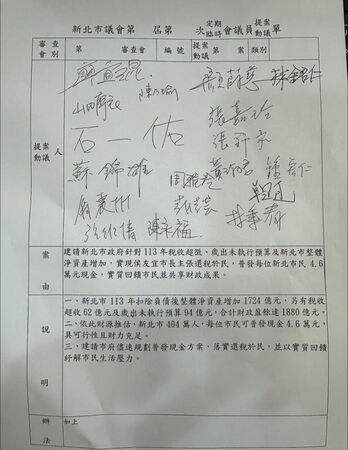 新北市議會第 屆第 次定期臨時會議員提案動議單
審查會別 第 審查會 編號 提案動議 第 案 類別
提案動議人
廖宜琨 陳乃瑜 顏蔚慈 林銘仁
山田摩衣 張嘉玲
石一佑
蘇錦雄 周雅玲 黃淑君 鍾宏仁
戴瑋姍
陳永福
案由
建請新北市政府針對 113 年稅收超徵、歲出未執行預算及新北市整體
淨資產增加,實現侯友宜市長主張還稅於民,普發每位新北市民 4.6
萬元現金,實質回饋市民並共享財政成果。
說明
一、新北市 113 年扣除負債後整體淨資產增加 1724 億元,另有稅收
超收 62 億元及歲出未執行預算 94 億元,合計財政盈餘達 1880 億元。
二、依此財源推估,新北市 404 萬人,每位市民可普發現金 4.6 萬元,
具可行性且財力充足。
三、建請市府儘速規劃普發現金方案,落實還稅於民,並以實質回饋
紓解市民生活壓力。
辦法
如上